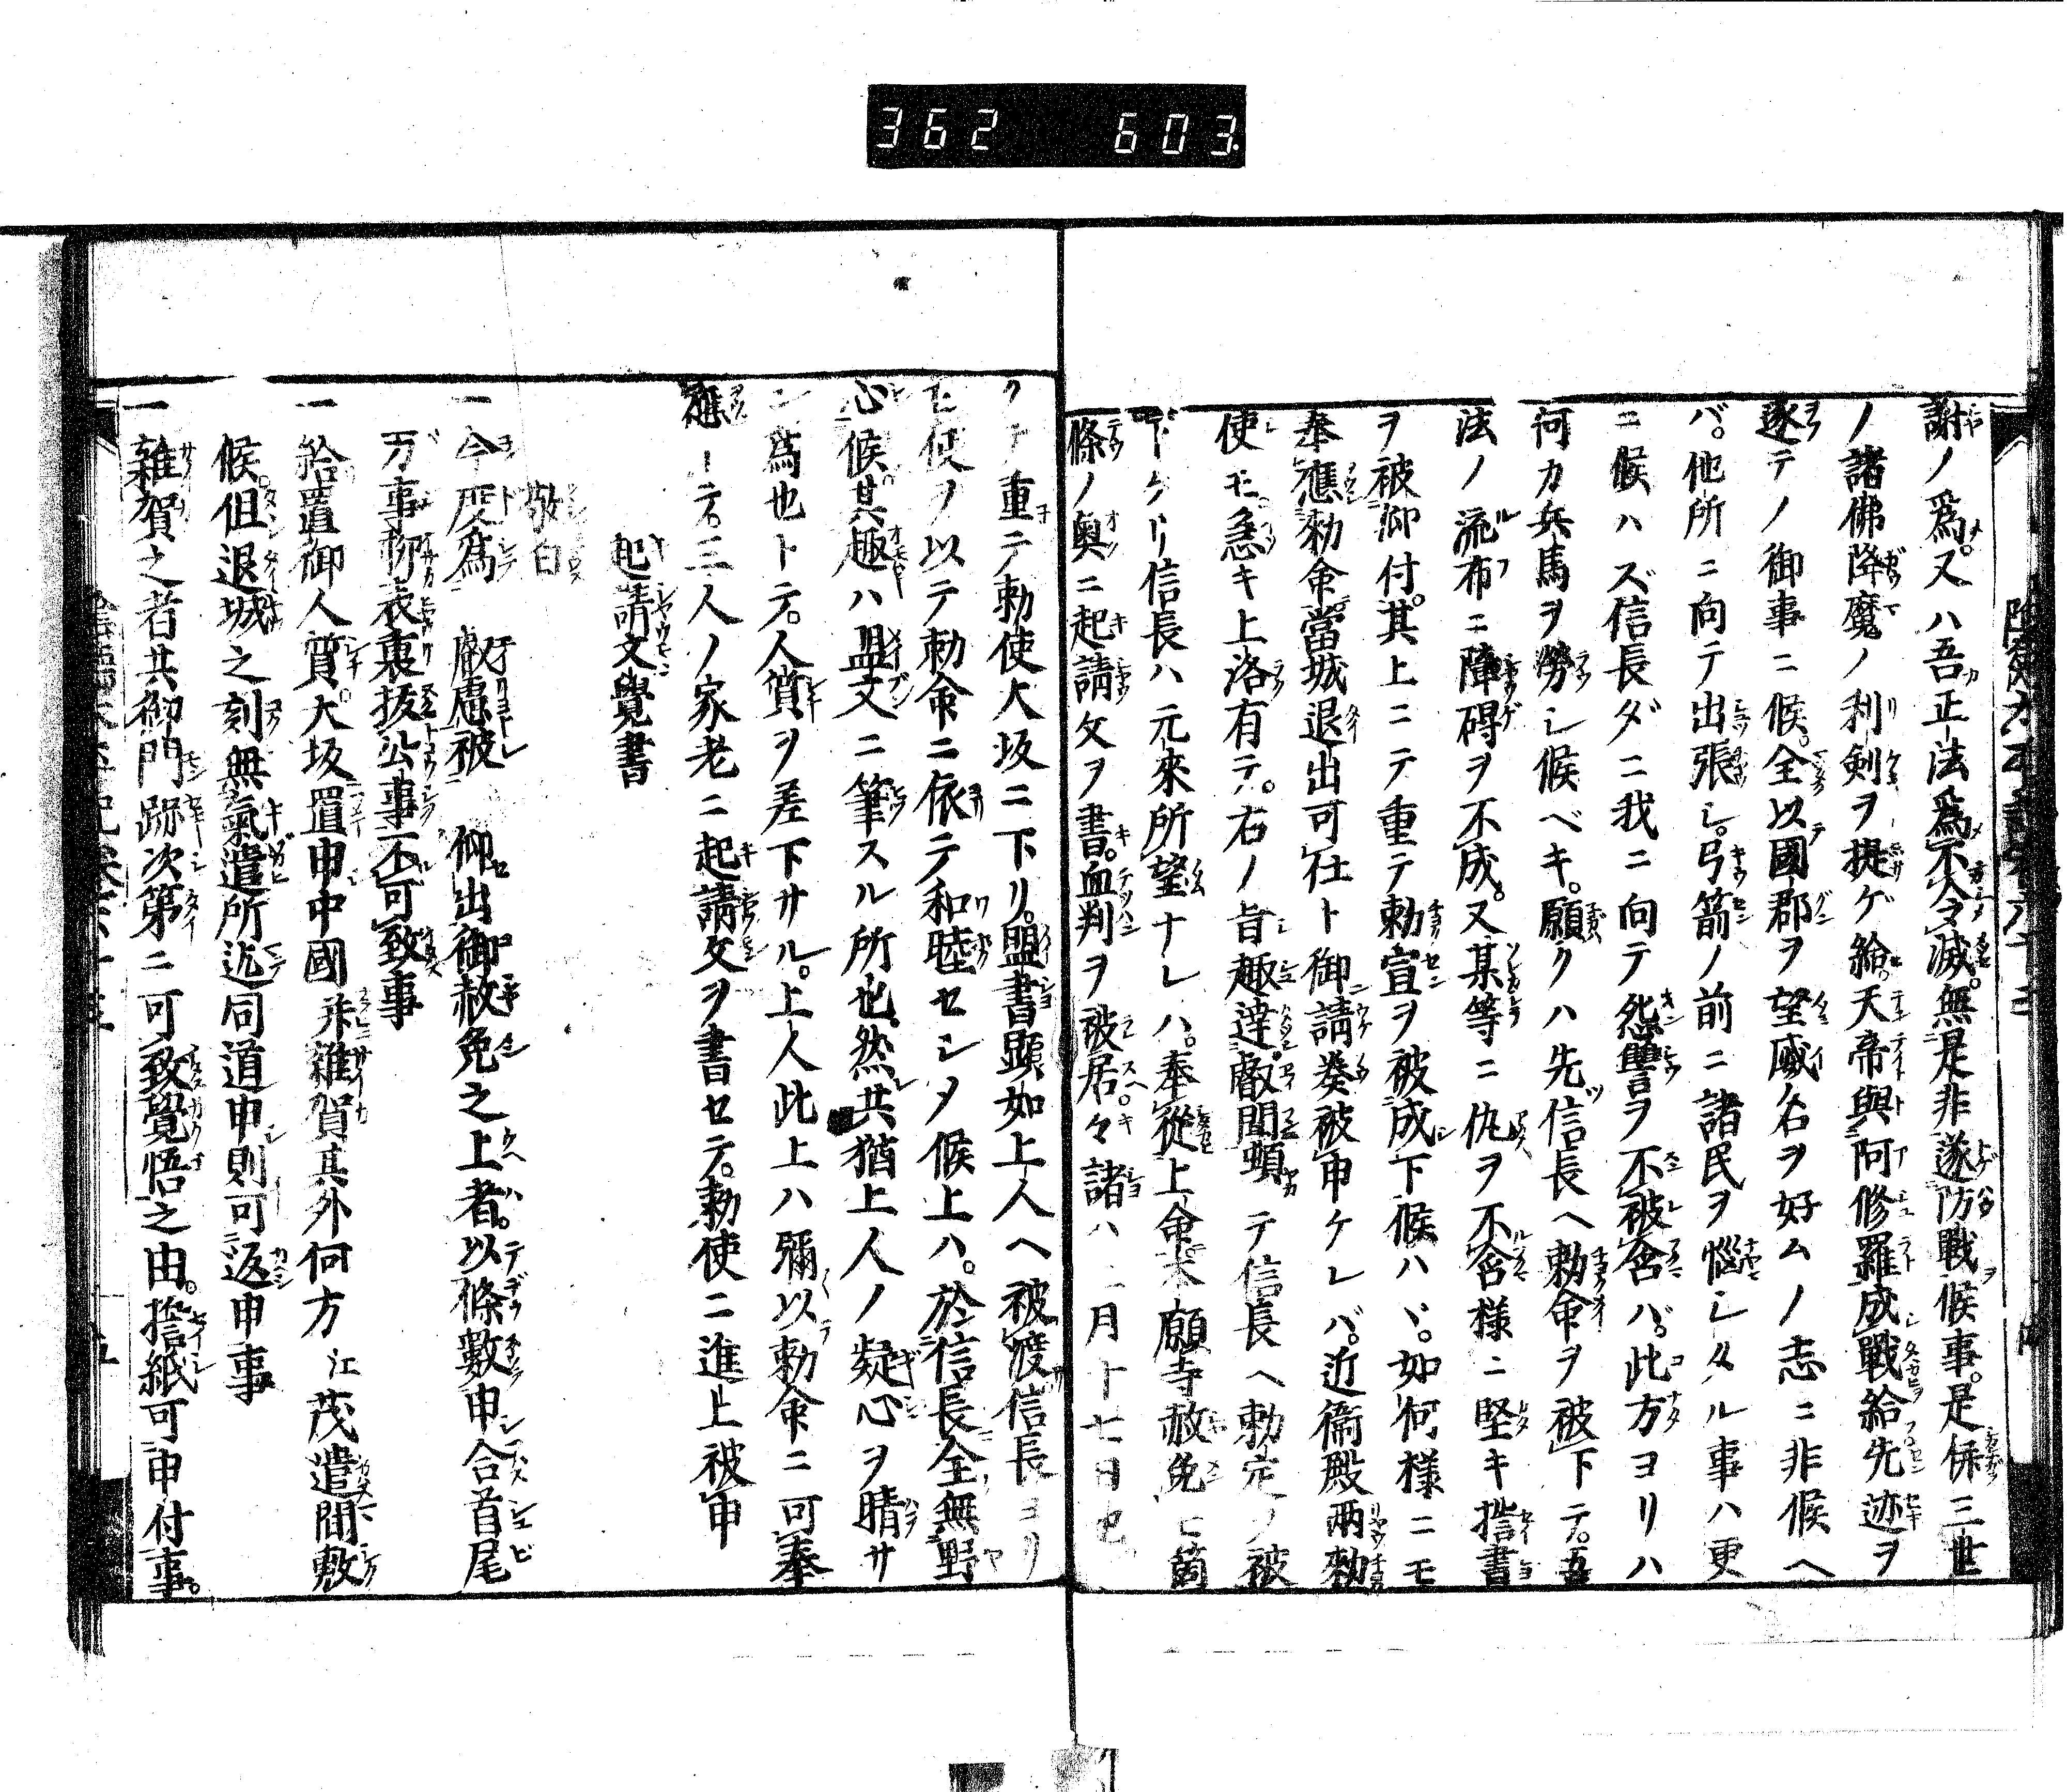 362 603
謝ノ爲。又ハ吾正法爲不令滅。無是非遂防戰候事。是併三世
ノ諸佛降魔ノ利剣ヲ提ゲ給。天帝與阿修羅成戰給先迹ヲ
逐テノ御事ニ候。全以國郡ヲ望威名ヲ好ムノ志ニ非候ヘ
バ。他所ニ向テ出張シ。弓箭ノ前ニ諸民ヲ惱シタル事ハ更
ニ候ハズ信長ダニ我ニ向テ怨讐ヲ不被含バ。此方ヨリハ
何カ兵馬ヲ勞シ候ベキ。願クハ先信長ヘ勅命ヲ被下テ。吾
法ノ流布ニ障碍ヲ不成。又某等ニ仇ヲ不含樣ニ堅キ誓書
ヲ被仰付。其上ニテ重テ勅宣ヲ被成下候ハヾ。如何樣ニモ
奉應勅命當城退出可仕ト御請奏被申ケレバ。近衞殿兩勅
使モ急キ上洛有テ。右ノ旨趣達叡聞頓テ信長ヘ勅定ノ被
下ケリ信長ハ元來所望ナレハ。奉從上命本願寺赦免七箇
條ノ奥ニ起請文ヲ書。血判ヲ被居 諸ハ三月十七日也
クテ重テ勅使大坂ニ下リ。盟書顯如上人ヘ被渡信長ヨリ
モ使ヲ以テ勅命ニ依テ和睦セシメ候上ハ。於信長全無野
心候其趣ハ盟文ニ筆スル所也。然共猶上人ノ疑心ヲ晴サ
ン爲也トテ。人質ヲ差下サル。上人此上ハ彌以勅命ニ可奉
應トテ。三人ノ家老ニ起請文ヲ書セテ。勅使ニ進上被申
起請文覺書
敬白
一今度爲 叡慮被 仰出御赦免之上者。以條數申合首尾
万事抑表裏抜公事不可致事
一給置御人質。大坂置申中國并雜賀其外何方江茂遣間敷
候。但退城之刻無氣遣所迄同道申則可返申事
一雜賀之者共御門跡次第ニ可致覺悟之由。誓紙可申付事。